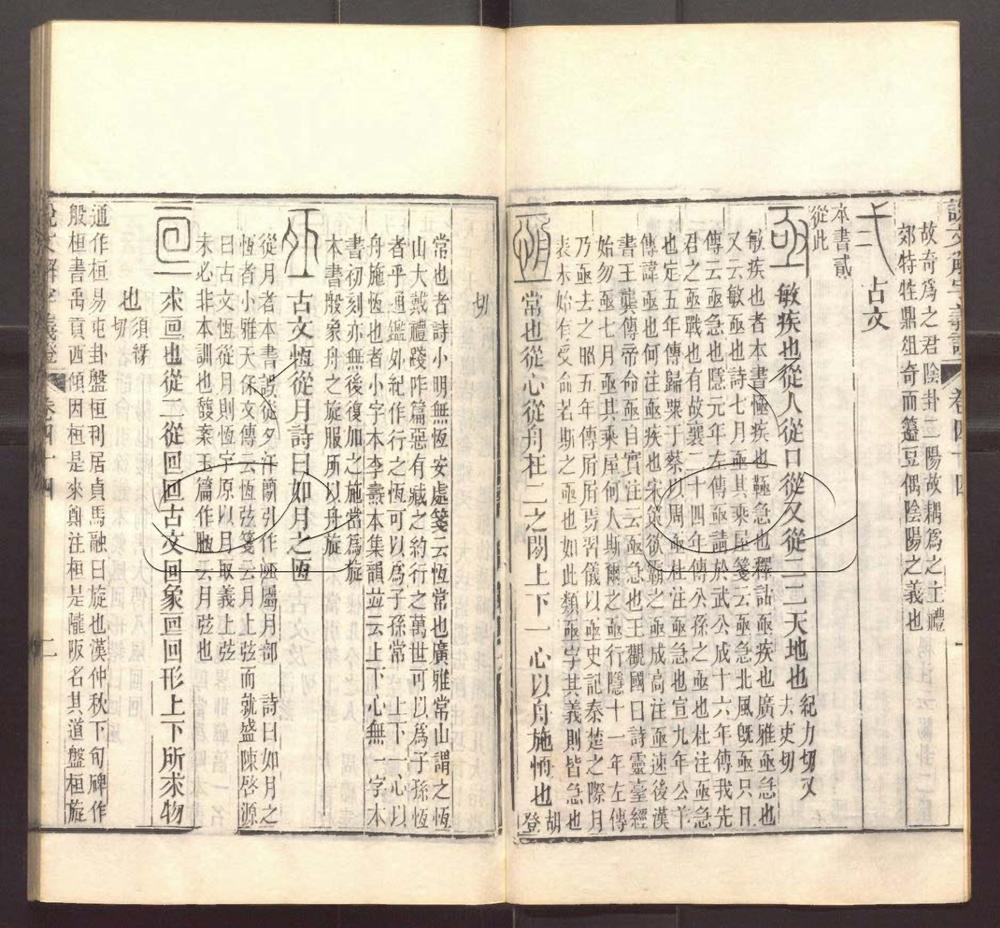 故奇爲之君陰卦二陽故耦爲之主禮
郊特牲鼎俎奇而籩豆偶陰陽之義也
古文
本書貳
從此
敏疾也從人從口從又從二二天地也 紀力切又
去吏切
敏疾也者本書㥛疾也䩯急也釋詁亟疾也廣雅亟急也
又云敏亟也詩七月亟其乘屋箋云亟急北風旣亟只且
傳云亟急也隱元年左傳亟請於武公成十六年傳我先
君之亟戰也有故襄二十四年傳公孫之亟也杜注亟急
也定五年傳歸粟于蔡以周亟杜注亟急也宣九年公羊
傳諱亟也何注亟疾也宋策欲霸之亟成高注亟速後漢
書王龔傳帝命亟自實注云亟急也王觀國曰詩靈臺經
始勿亟七月亟其乘屋何人斯爾之亟行隱十一年左傳
乃亟去之昭五年傳屑屑焉習儀以亟史記秦楚之際月
表未始有受命若斯之亟也如此類亟字其義則皆急也
常也從心從舟在二之閒上下一心以舟施恆也 胡
登
切
常也者詩小明無恆安處箋云恆常也廣雅常山謂之恆
山大戴禮踐阼篇惡有藏之約行之萬世可以爲子孫恆
者乎通鑑外紀作行之恆可以爲子孫常 上下一心以
舟施恆也者小字本李燾本集韻竝云上下心無一字本
書初刻亦無後復加之施當爲旋
本書般象舟之旋服所以舟旋
古文恆從月詩曰如月之恆
從月者本書誤從夕汗簡引作𠄨屬月部 詩曰如月之
恆者小雅天保文傳云恆弦箋云月上弦而就盛陳啓源
曰古文恆從月則恆字原以月取義上弦
未必非本訓也馥案玉篇作䱍云月弦也
求亘也從二從回回古文回象亘回形上下所求物
也 須緣
切
通作桓易屯卦盤桓利居貞馬融曰旋也漢仲秋下旬碑作
般桓書禹貢西傾因桓是來鄭注桓是隴阪名其道盤桓旋
說文解字義證
卷四十四
二